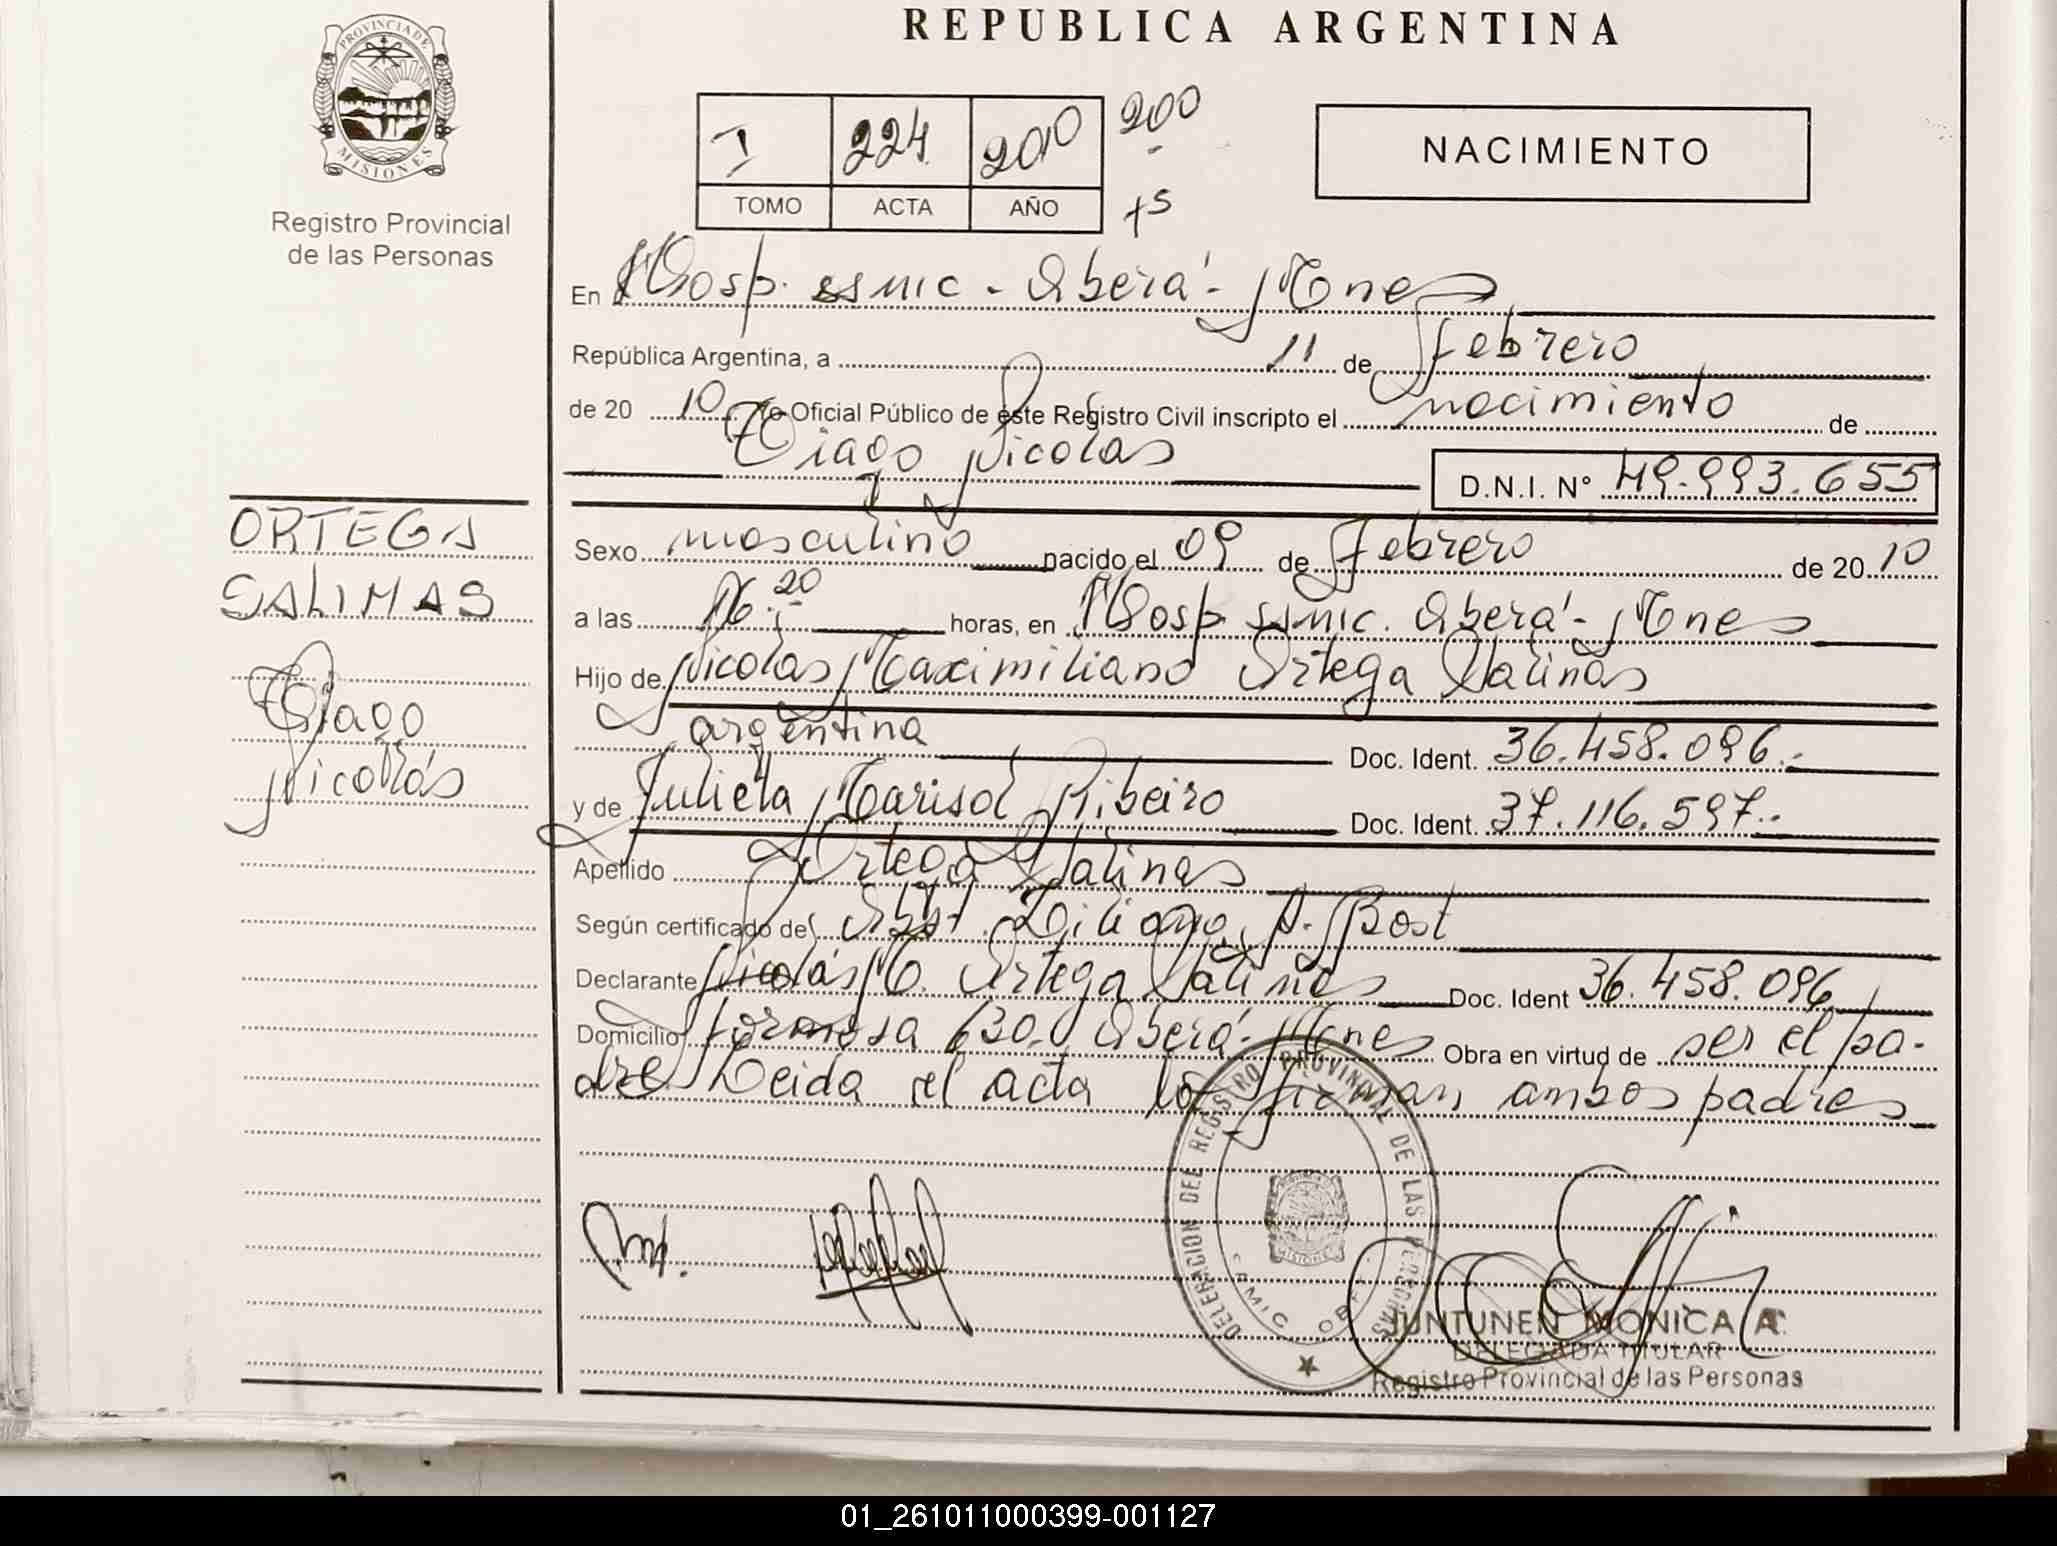 REPUBLICA ARGENTINA
PROVINCIA DE
MISIONES
Registro Provincial
de las Personas
I 224 2010 200
TOMO ACTA AÑO
NACIMIENTO
En Hosp. ssmic - Oberá - Mnes
República Argentina, a 11 de febrero
de 20 10 Yo Oficial Público de este Registro Civil inscripto el nacimiento de
Tiago Nicolas
D.N.I. N° 49.993.655
ORTEGA
SALINAS
Tiago
Nicolás
Sexo masculino nacido el 09 de Febrero de 20 10
a las 16.20 horas, en Hosp ssmic. Oberá - Mnes
Hijo de Nicolas Maximiliano Ortega Salinas
argentina Doc. Ident. 36.458.096.-
y de Julieta Marisol Ribeiro Doc. Ident. 37.116.597.-
Apellido Ortega Salinas
Según certificado de Obst. A. Bost
Declarante Nicolás M. Ortega Salinas Doc. Ident 36.458.096
Domicilio formosa 630. Oberá - Mnes Obra en virtud de ser el pa-
dre Leida el acta la firman ambos padres
DELEGACION DEL REGISTRO PROVINCIAL DE LAS PERSONAS
MISIONES
JUNTUNEN MONICA A.
DELEGADA TITULAR
Registro Provincial de las Personas
01_261011000399-001127